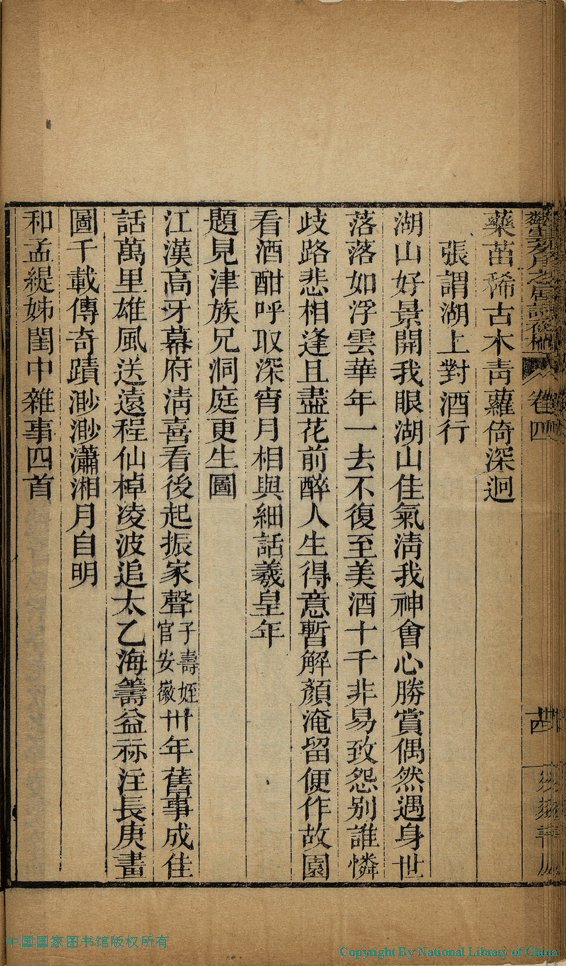 藥苗稀古木靑蘿倚深迥
張謂湖上對酒行
湖山好景開我眼湖山佳氣淸我神會心勝賞偶然遇身世
落落如浮雲華年一去不復至美酒十千非易致怨别誰憐
歧路悲相逢且盡花前醉人生得意暫解顏淹留便作故園
看酒酣呼取深宵月相與細話羲皇年
題見津族兄洞庭更生圖
江漢高牙幕府淸喜看後起振家聲子壽姪官安徽卅年舊事成佳
話萬里雄風送遠程仙棹凌波追太乙海籌益祘注長庚畫
圖千載傳奇蹟渺渺瀟湘月自明
和孟緹姊閨中雜事四首
卷四
中国国家图书馆版权所有
Copyright By National Library of China